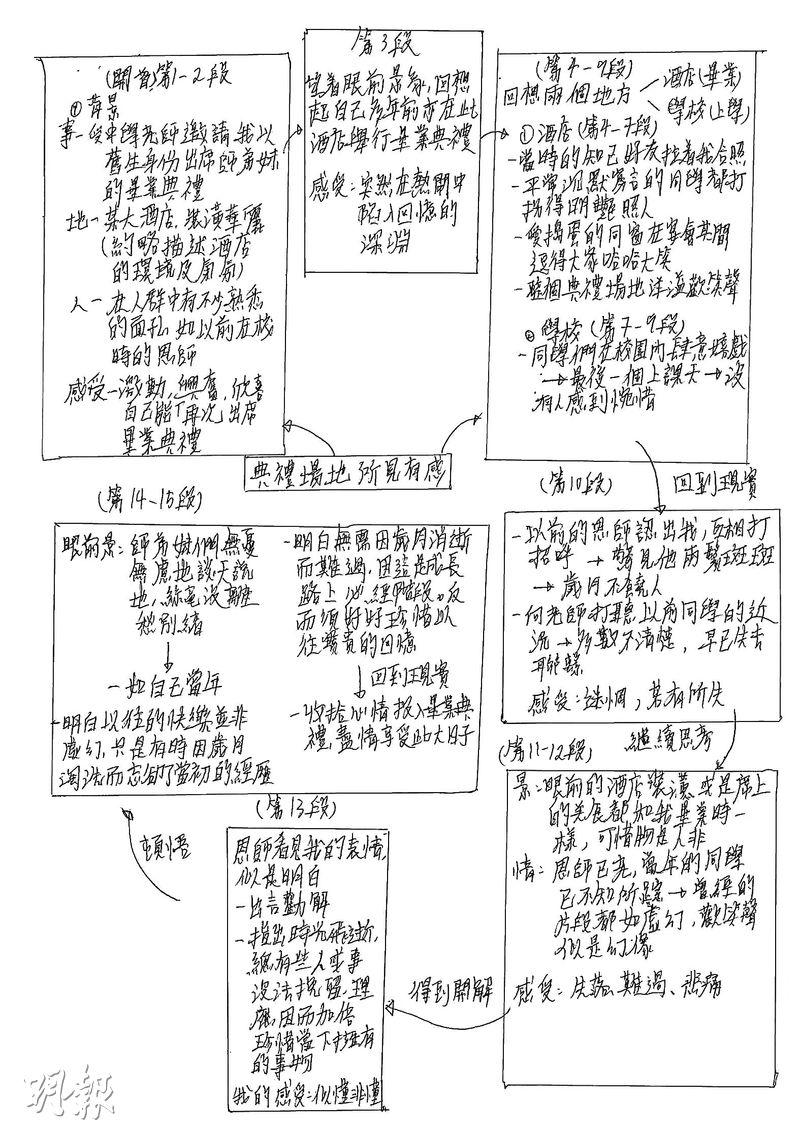 (開首)第1-2段
①背景
事-受中學老師邀請我以
舊生身份出席師弟妹
的畢業典禮
地-某大酒店，裝潢華麗
(約略描述酒店
的環境及氣氛)
人-在人群中有不少熟悉
的面孔，如以前在校
時的恩師
感受-激動、興奮，欣喜
自己能「再次」出席
畢業典禮
第3段
望着眼前景象，回想
起自己多年前亦在此
酒店舉行畢業典禮
感受：突然在熱鬧中
陷入回憶的
深淵
(第4-9段)
回想兩個地方
酒店(畢業)
學校(上學)
①酒店(第4-7段)
-當時的知己好友拉着我合照
-平常沉默寡言的同學都打
扮得明艷照人
-愛搗蛋的同窗在宴會其間
逗得大家哈哈大笑
-整個典禮場地洋溢歡笑聲
②學校(第7-9段)
-同學們在校園內肆意嬉戲
→最後一個上課天→沒
有人感到惋惜
典禮場地所見有感
回到現實
(第10段)
-以前的恩師認出我，互相打
招呼→驚見他兩鬢斑斑
→歲月不饒人
-向老師打聽以前同學的近
況→多數不清楚，早已失去
聯繫
感受：迷惘，若有所失
繼續思考
(第11-12段)
景：眼前的酒店裝潢或是席上
的美食都如我畢業時一
樣，可惜物是人非
情：恩師已老，當年的同學
已不知所蹤→曾經的
片段都如虛幻，歡笑聲
似是幻像
感受：失落、難過、悲痛
得到開解
(第13段)
恩師看見我的表情，
似是明白
-出言勸解
-指出時光飛逝，
總有些人或事
沒法挽留，理
應因而加倍
珍惜當下擁有
的事物
我的感受：似懂非懂
頓悟
(第14-15段)
眼前景：師弟妹們無憂
無慮地談天說
地，絲毫沒離
愁別緒
一如自己當年
-明白以往的快樂並非
虛幻，只是有時因歲月
淘洗而忘卻了當初的經歷
-明白無需因歲月消逝
而難過，因這是成長
路上必經階段。反
而須好好珍惜以
往寶貴的回憶
回到現實
-收拾心情投入畢業典
禮，盡情享受此大日子
明報